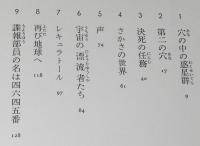 1 穴の中の惑星群 9
2 第二の穴 17
3 決死の任務 40
4 さかさの世界 61
5 声 74
6 宇宙の漂流者たち 84
7 レキュラトール 97
8 再び地球へ 118
9 諜報部員の名は四六四五番 128